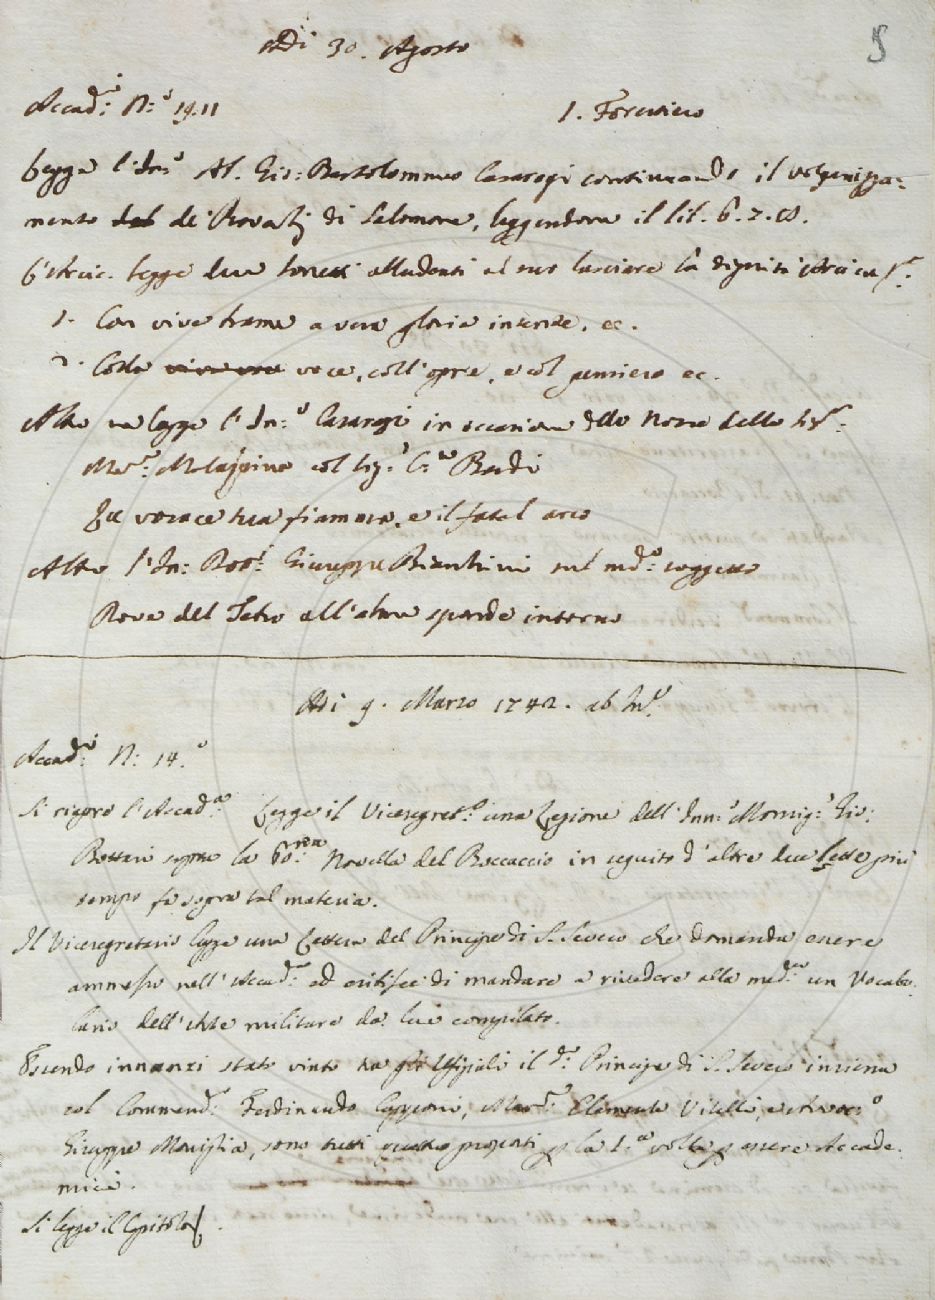 5
Adi 30. Agosto
Accad:ⁱ N:º 19. 11    1. Forestiero
Legge l'Inn:º Ab. Gio: Bartolommeo Casaregi continuando il volgarizza=
mento del de' Proverbj di Salomone, leggendone il lib. 6. 7. 8.
L'Arcic. legge due sonetti alludenti al suo lasciare la dignità
1. Con vive trame a vera gloria intende, ec.
2. Colla viva voce voce, coll'opre, e col pensiero ec.
Altro ne legge l'Inn:º Casaregi in occasione delle Nozze della
Mar.ª Malaspina col Sig.ʳ C.ᵗᵉ Bardi
La vorace tua fiamma, e il fatal arco
Altro l'Inn: Dott:ʳ Giuseppe Bianchini sul med.º soggetto
Prove del Tebro all'alme sponde intorno
Adi 9. Marzo 1742. ab Inc.
Accad:ⁱ N: 14.º
Si riapre l'Accad.ª Legge il Vicesegret.º una Lezione dell'Inn:º Monsig:ʳ Gio:
Bottari sopra la Novella del Boccaccio in seguito d'altre due Lette più
tempo fa sopra tal materia.
Il Vicesegretario legge una Lettera del Principe di S. Severo che domanda essere
ammesso nell'Accad.ª ed esibisce di mandare a rivedere alla med.ª un Vocabo-
lario dell'Arte militare da lui compilato.
Essendo innanzi stato vinto tra gli Ufiziali il d.º Principe di S. Severo insieme
col Commend.ʳ Ferdinando Capponi, Mar.ˢᵉ Clemente Vitelli, e
Giuseppe Maniglia, sono tutti quattro proposti p la 1.ª volta p essere Accade-
mici.
Si legge il Capitolo.